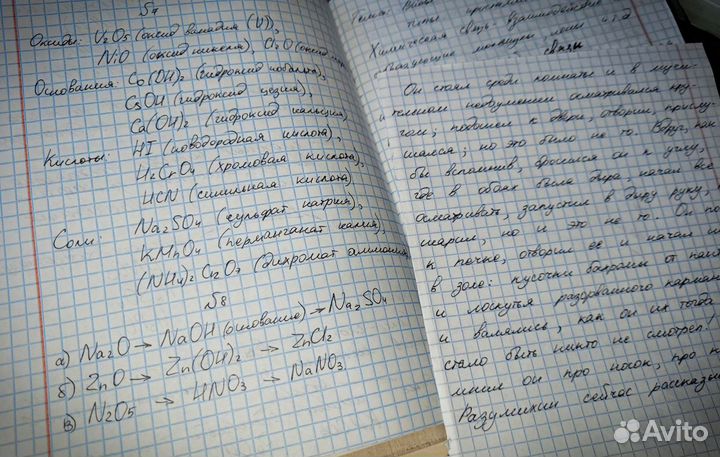 №7
Оксиды: V₂O₅ (оксид ванадия (V)),
NiO (оксид никеля)
Основания: Co(OH)₂ (гидроксид кобальта),
CsOH (гидроксид цезия),
Ca(OH)₂ (гидроксид кальция)
Кислоты: HI (иодоводородная кислота),
H₂CrO₄ (хромовая кислота),
HCN (синильная кислота).
Соли: Na₂SO₄ (сульфат натрия),
KMnO₄ (перманганат калия),
(NH₄)₂Cr₂O₇ (дихромат аммония
№8
а) Na₂O → NaOH (основание) → Na₂SO₄
б) ZnO → Zn(OH)₂ → ZnCl₂
в) N₂O₅ → HNO₃ → NaNO₃
Тема:
типы
Химическая связь взаимодействие
связи
Он стоял среди комнаты и в мучи-
тельном недоумении осматривался кру-
гом; подошел к двери, отворил, прислу-
шался; но это было не то. Вдруг, как
бы вспомнив, бросился он к углу,
где в обоях была дыра, начал все
осматривать, запустил в дыру руку,
шарил, но и это не то. Он по
к печке, отворил ее и начал ш
в золе: кусочки бахромы от пан
и лоскутья разорванного карман
и валялись, как он их тогда
стало быть никто не смотрел!
мнил он про носок, про к
Разумихин сейчас рассказы
Avito